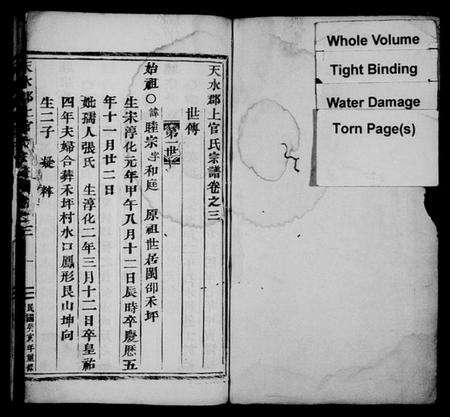 天水郡上官氏宗譜卷之三
世傳
第一世
始祖 諱睦宗字和庭 原祖世居閩邵禾坪
生宋淳化元年甲午八月十二日辰時卒慶歷五
年十一月廿二日
妣孺人張氏 生淳化二年三月十二日卒皇祐
四年夫婦合葬禾坪村水口鳳形艮山坤向
生二子
天水郡上官
一
民國癸亥年
Whole Volume
Tight Binding
Water Damage
Torn Page(s)